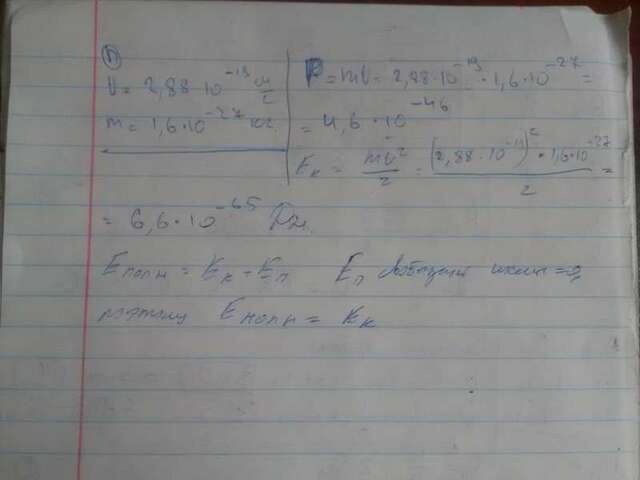 ①
V = 2,88·10⁻¹⁹ м/с
m = 1,6·10⁻²⁷ кг.
P = mV = 2,88·10⁻¹⁹ · 1,6·10⁻²⁷ =
= 4,6·10⁻⁴⁶
Eк = mV²/2 = (2,88·10⁻¹⁹)² · 1,6·10⁻²⁷ / 2 =
= 6,6·10⁻⁶⁵ Дж.
Eполн = Eк + Eп Eп = 0,
поэтому Eполн = Eк